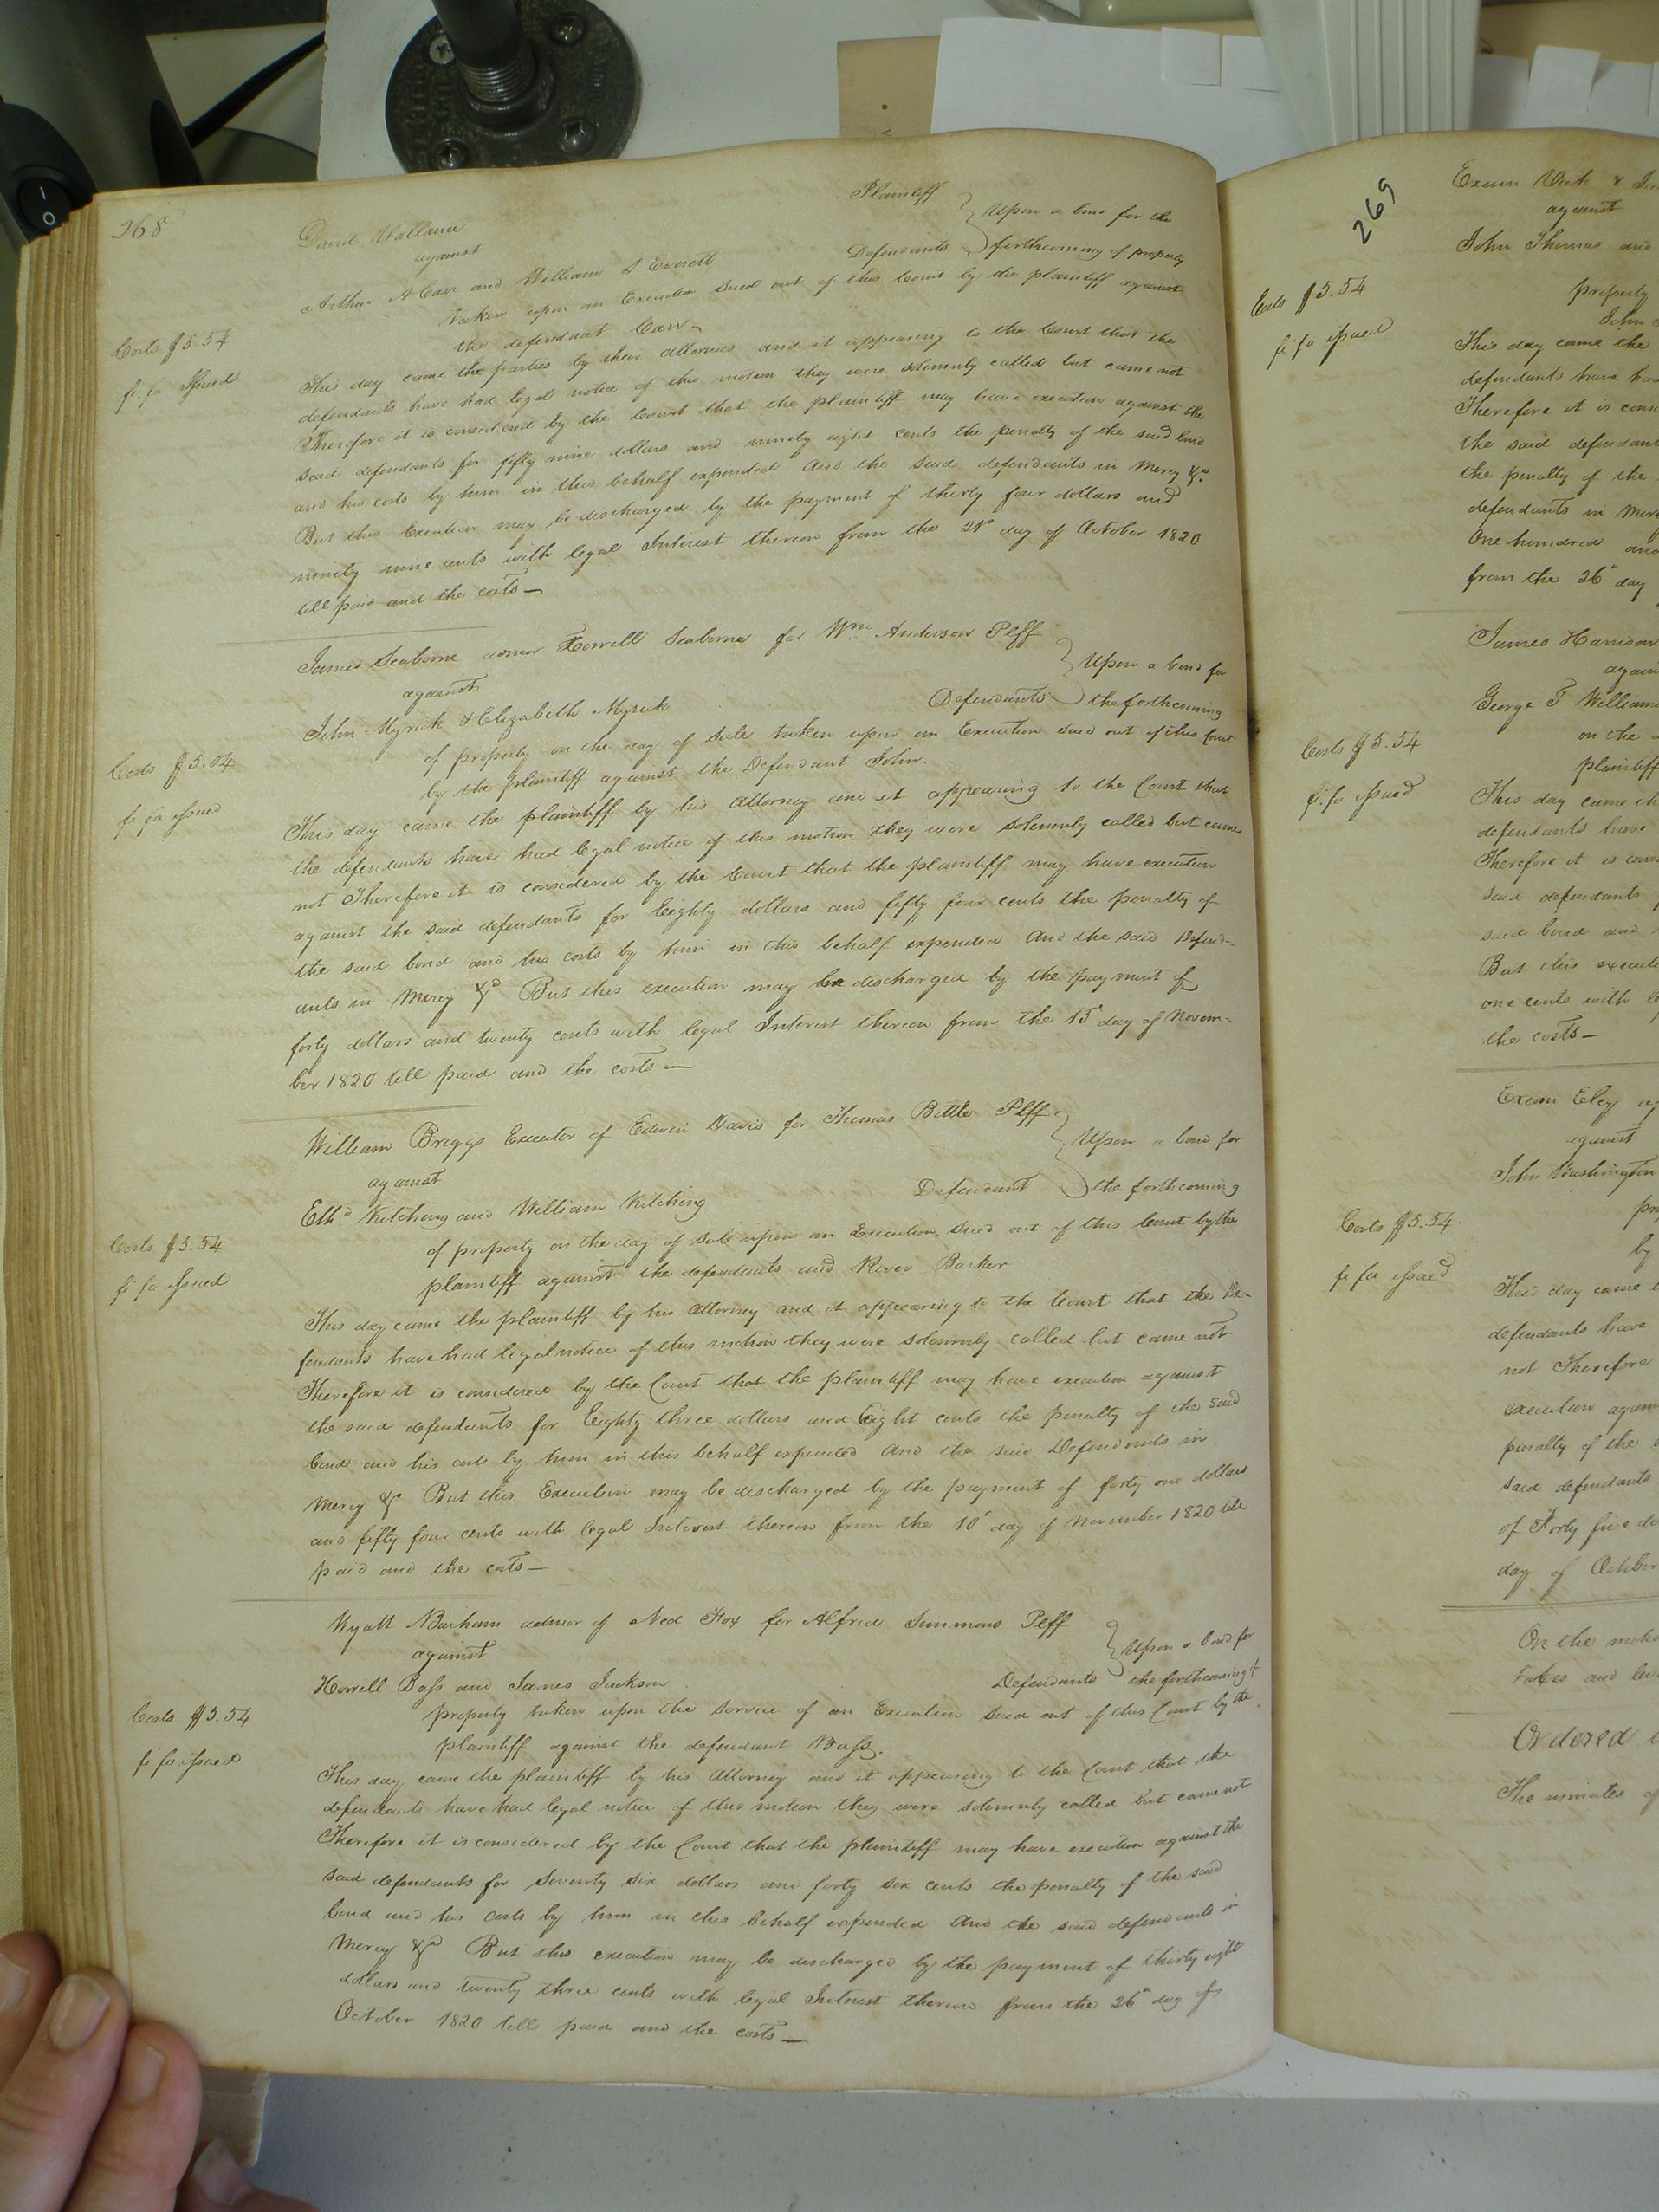 268
David Wallace Plaintiff
against
Upon a bond for the
Arthur A Carr and William S Everett Defendants forthcoming of property
taken upon an Execution sued out of this Court by the plaintiff against
the defendant Carr—
Costs $5.54
fi. fa Issued
This day came the parties by their attornies and it appearing to the Court that the
defendants have had legal notice of this motion they were solemnly called but came not
Therefore it is considered by the Court that the plaintiff may have execution against the
said defendants for fifty nine dollars and ninety eight cents the penalty of the said bond
and his costs by him in this behalf expended And the said defendants in Mercy &c.
But this Execution may be discharged by the payment of thirty four dollars and
ninety nine cents with legal Interest thereon from the 21st day of October 1820
till paid and the costs—
James Seaborne admor Howell Seaborne for Wm Anderson Plff
against
Upon a bond for
John Myrick & Elizabeth Myrick Defendants the forthcoming
of property on the day of sale taken upon an Execution sued out of this Court
by the plaintiff against the Defendant John.
Costs $5.04
fi fa issued
This day came the plaintiff by his attorney and it appearing to the Court that
the defendants have had legal notice of this motion they were solemnly called but came
not Therefore it is considered by the Court that the plaintiff may have execution
against the said defendants for Eighty dollars and fifty four cents the penalty of
the said bond and his costs by him in this behalf expended And the said Defend-
ants in Mercy &c But this execution may be discharged by the payment of
forty dollars and twenty cents with legal Interest thereon from the 15 day of Novem-
ber 1820 till paid and the costs—
William Briggs Executor of Edwin Davis for Thomas Bittle Plff
against
Upon a bond for
Ethd Kitching and William Kitching Defendant the forthcoming
of property on the day of sale upon an Execution sued out of this Court by the
plaintiff against the defendants and River Barker
Costs $5.54
fi fa issued
This day came the plaintiff by his attorney and it appearing to the Court that the De-
fendants have had legal notice of this motion they were solemnly called but came not
Therefore it is considered by the Court that the plaintiff may have execution against
the said defendants for Eighty three dollars and Eight cents the penalty of the said
bond and his costs by him in this behalf expended And the said Defendants in
Mercy &c But this Execution may be discharged by the payment of forty one dollars
and fifty four cents with legal Interest thereon from the 10th day of November 1820 till
paid and the costs—
Wyatt Barham admor of Ned Fox for Alfred Simmons Plff
against
Upon a bond for
Howell Bass and James Jackson Defendants the forthcoming of
property taken upon the service of an Execution sued out of this Court by the
plaintiff against the defendant Bass.
Costs $5.54
fi fa issued
This day came the plaintiff by his attorney and it appearing to the Court that the
defendants have had legal notice of this motion they were solemnly called but came not
Therefore it is considered by the Court that the plaintiff may have execution against the
said defendants for Seventy six dollars and forty six cents the penalty of the said
bond and his costs by him in this behalf expended And the said defendants in
Mercy &c But this execution may be discharged by the payment of thirty eight
dollars and twenty three cents with legal Interest thereon from the 26th day of
October 1820 till paid and the costs—
269
against
John Thomas and
property
John
Costs $5.54
fi fa issued
This day came the
defendants have had
Therefore it is cons
the said defendant
the penalty of the
defendants in Mer
One hundred and
from the 26th day
James Harrison
again
George T William
on the
plaintiff
Costs $5.54
fi. fa issued
This day came th
defendants have
Therefore it is cons
said defendants
said bond and
But this execut
one cents with le
the costs—
Exum Eley
against
John Washington
by
Costs $5.54.
fi fa issued
This day came
defendants have
not Therefore
execution again
penalty of the
said defendants
of Forty five do
day of October
On the mot
taxes and lev
Ordered
The minutes of